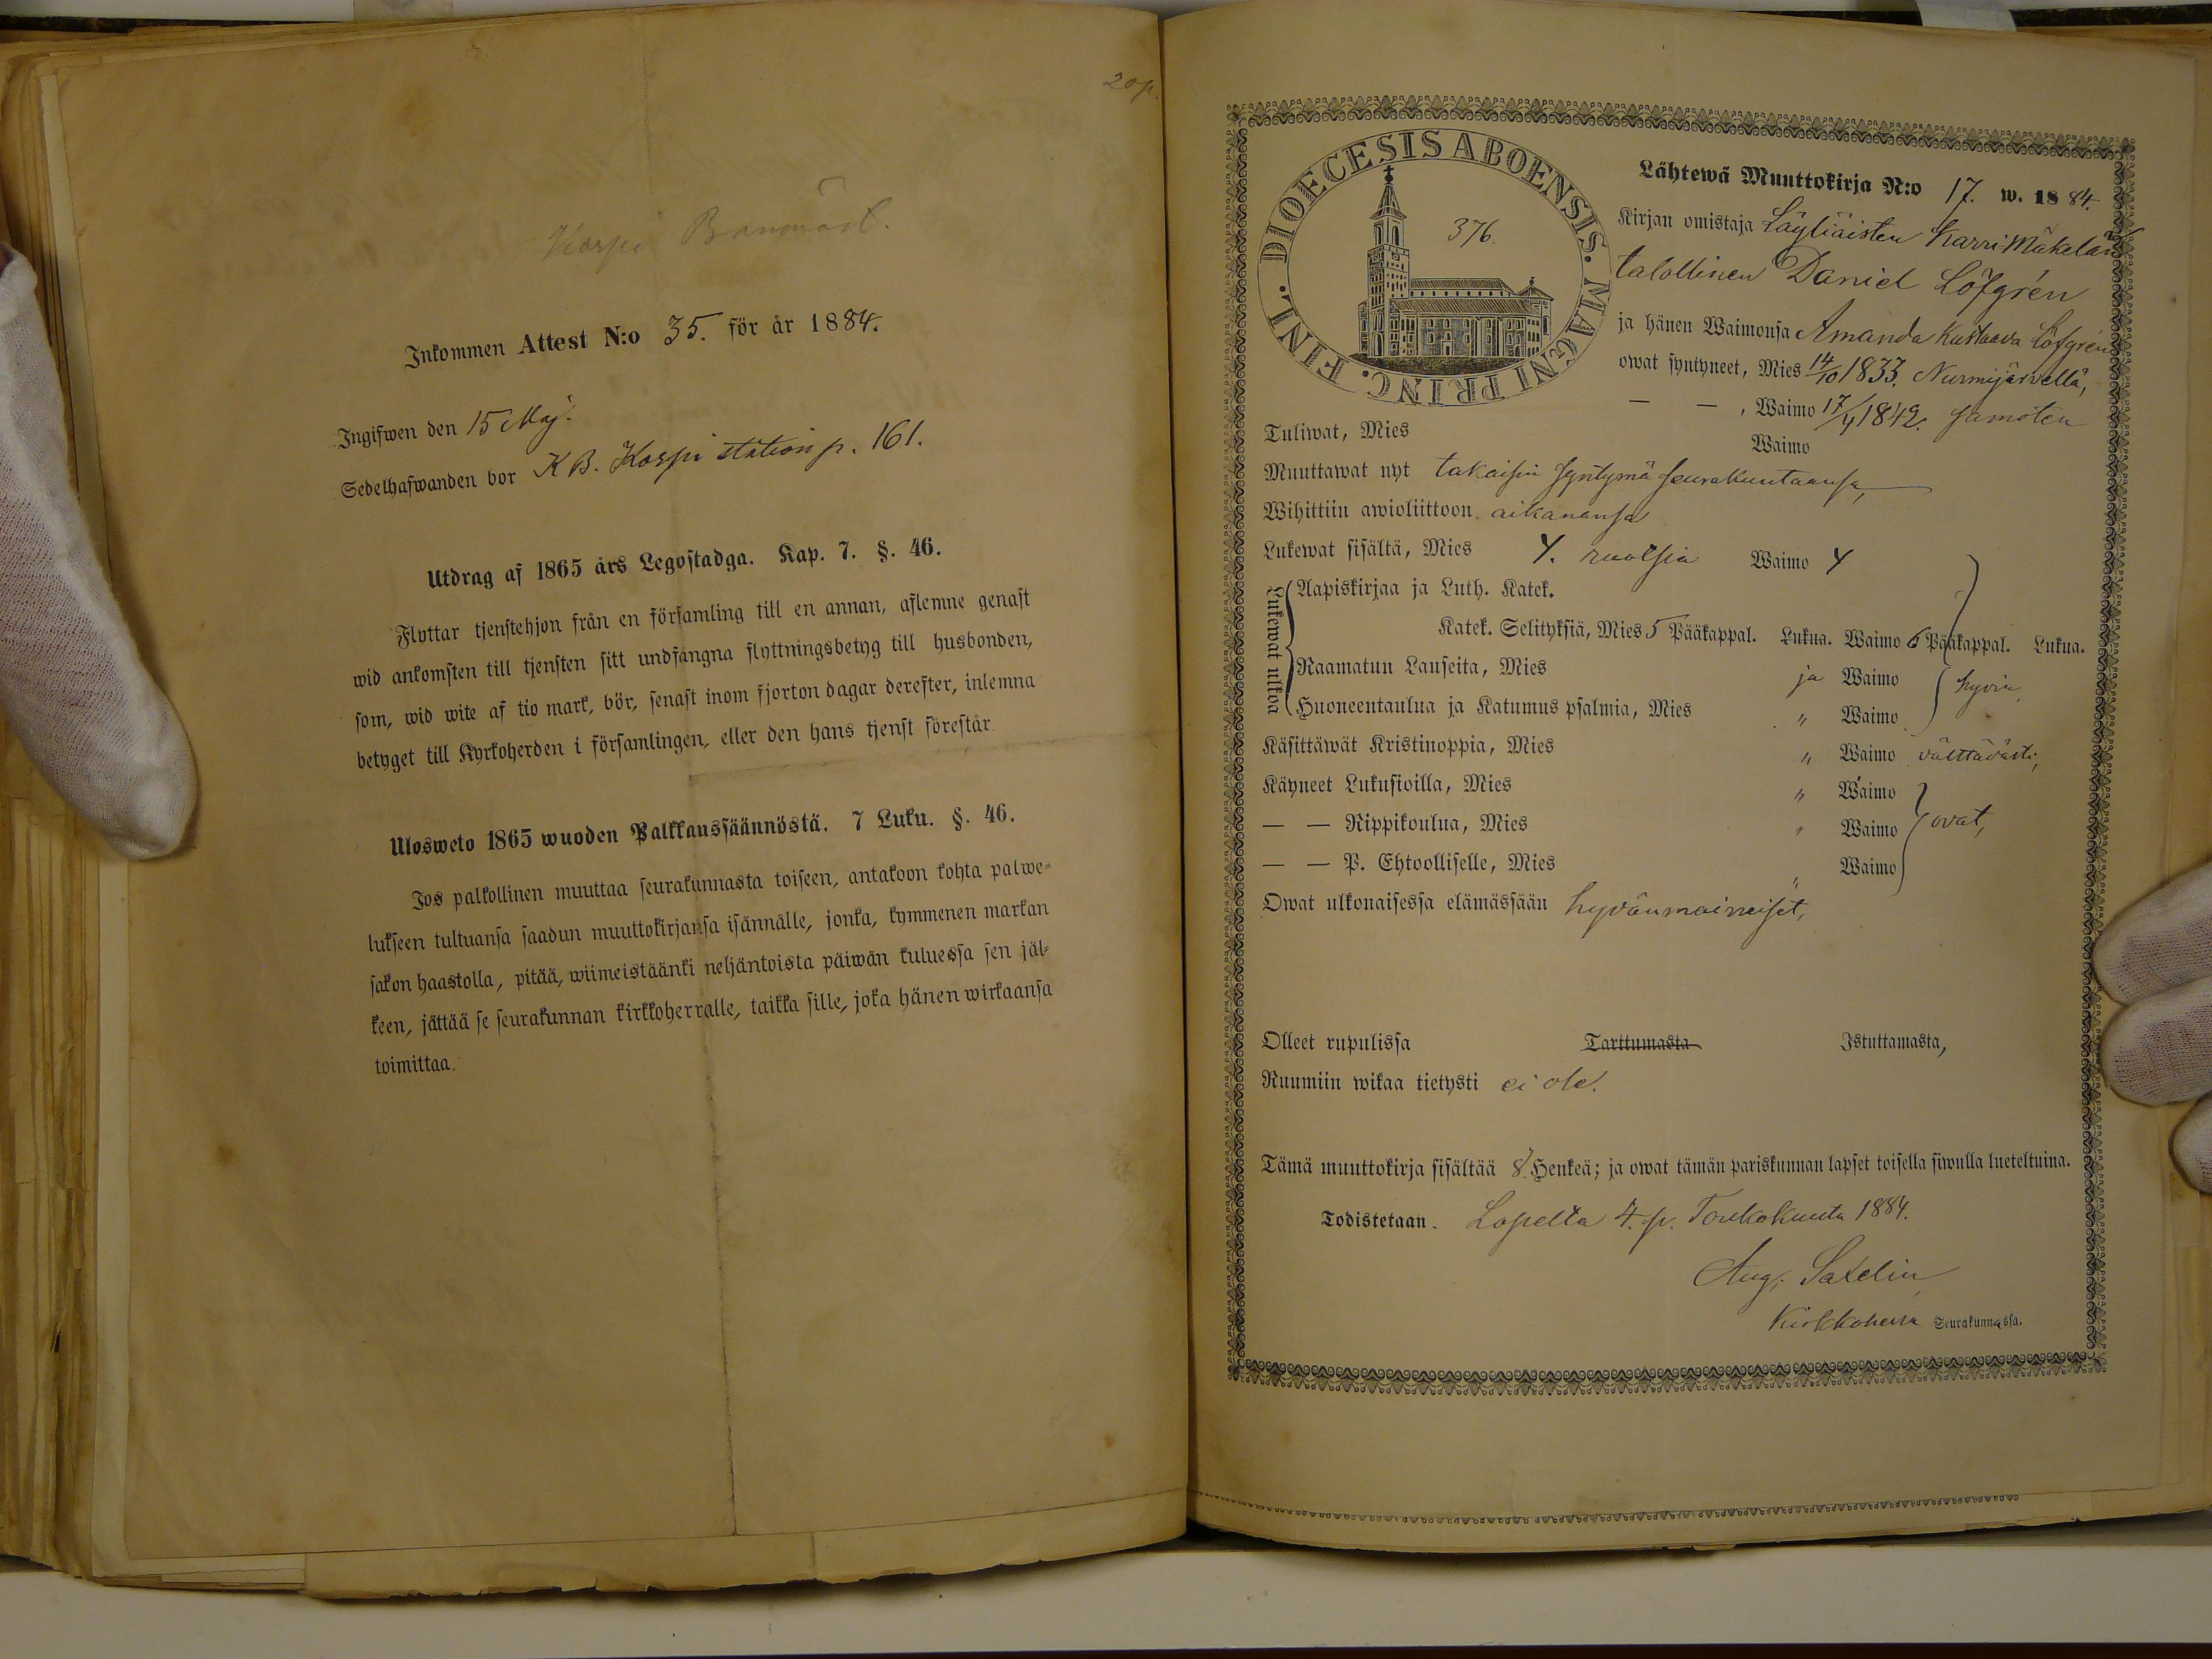 20 p.
Korpi Banmäst.
Inkommen Attest N:o 35. för år 1884.
Ingifwen den 15 Maj.
Sedelhafwanden bor K B. Korpi station p. 161.
Utdrag af 1865 års Legostadga. Kap. 7. §. 46.
Flyttar tjenstehjon från en församling till en annan, aflemne genast
wid ankomsten till tjensten sitt undfångna flyttningsbetyg till husbonden,
som, wid wite af tio mark, bör, senast inom fjorton dagar derefter, inlemna
betyget till Kyrkoherden i församlingen, eller den hans tjenst förestår.
Ulosweto 1865 wuoden Palkkaussäännöstä. 7 Luku. §. 46.
Jos palkollinen muuttaa seurakunnasta toiseen, antakoon kohta palwe-
lukseen tultuansa saadun muuttokirjansa isännälle, jonka, kymmenen markan
sakon haastolla, pitää, wiimeistäänki neljäntoista päiwän kuluessa sen jäl-
keen, jättää se seurakunnan kirkkoherralle, taikka sille, joka hänen wirkaansa
toimittaa.
DIOECESIS ABOENSIS. MAGNI PRINC. FINL.
376.
Lähtewä Muuttokirja N:o 17. w. 1884.
Kirjan omistaja Läyliäisten Karri Mäkelän
talollinen Daniel Löfgrén
ja hänen Waimonsa Amanda Kustaava Löfgrén
owat syntyneet, Mies 14/10 1833. Nurmijärvellä,
— — , Waimo 17/4 1842. samoten
Tuliwat, Mies Waimo
Muuttawat nyt takaisin syntymä seurakuntaansa,
Wihittiin awioliittoon aikanansa
Lukewat sisältä, Mies 4. ruotsia Waimo 4
Lukewat ulkoa
Aapiskirjaa ja Luth. Katek.
Katek. Selityksiä, Mies 5 Pääkappal. Lukua. Waimo 6 Pääkappal. Lukua.
Raamatun Lauseita, Mies ja Waimo hyvin
Huoneentaulua ja Katumus psalmia, Mies " Waimo
Käsittäwät Kristinoppia, Mies " Waimo välttävästi,
Käyneet Lukusioilla, Mies " Waimo
— — Rippikoulua, Mies " Waimo ovat,
— — P. Ehtoolliselle, Mies " Waimo
Owat ulkonaisessa elämässään hyvänmaineiset,
Olleet rupulissa Tarttumasta Istuttamasta,
Ruumiin wikaa tietysti ei ole.
Tämä muuttokirja sisältää 8. Henkeä; ja owat tämän pariskunnan lapset toisella siwulla lueteltuina.
Todistetaan. Lopelta 4. p. Toukokuuta 1884.
Aug.
Kirkkoherra Seurakunnassa.